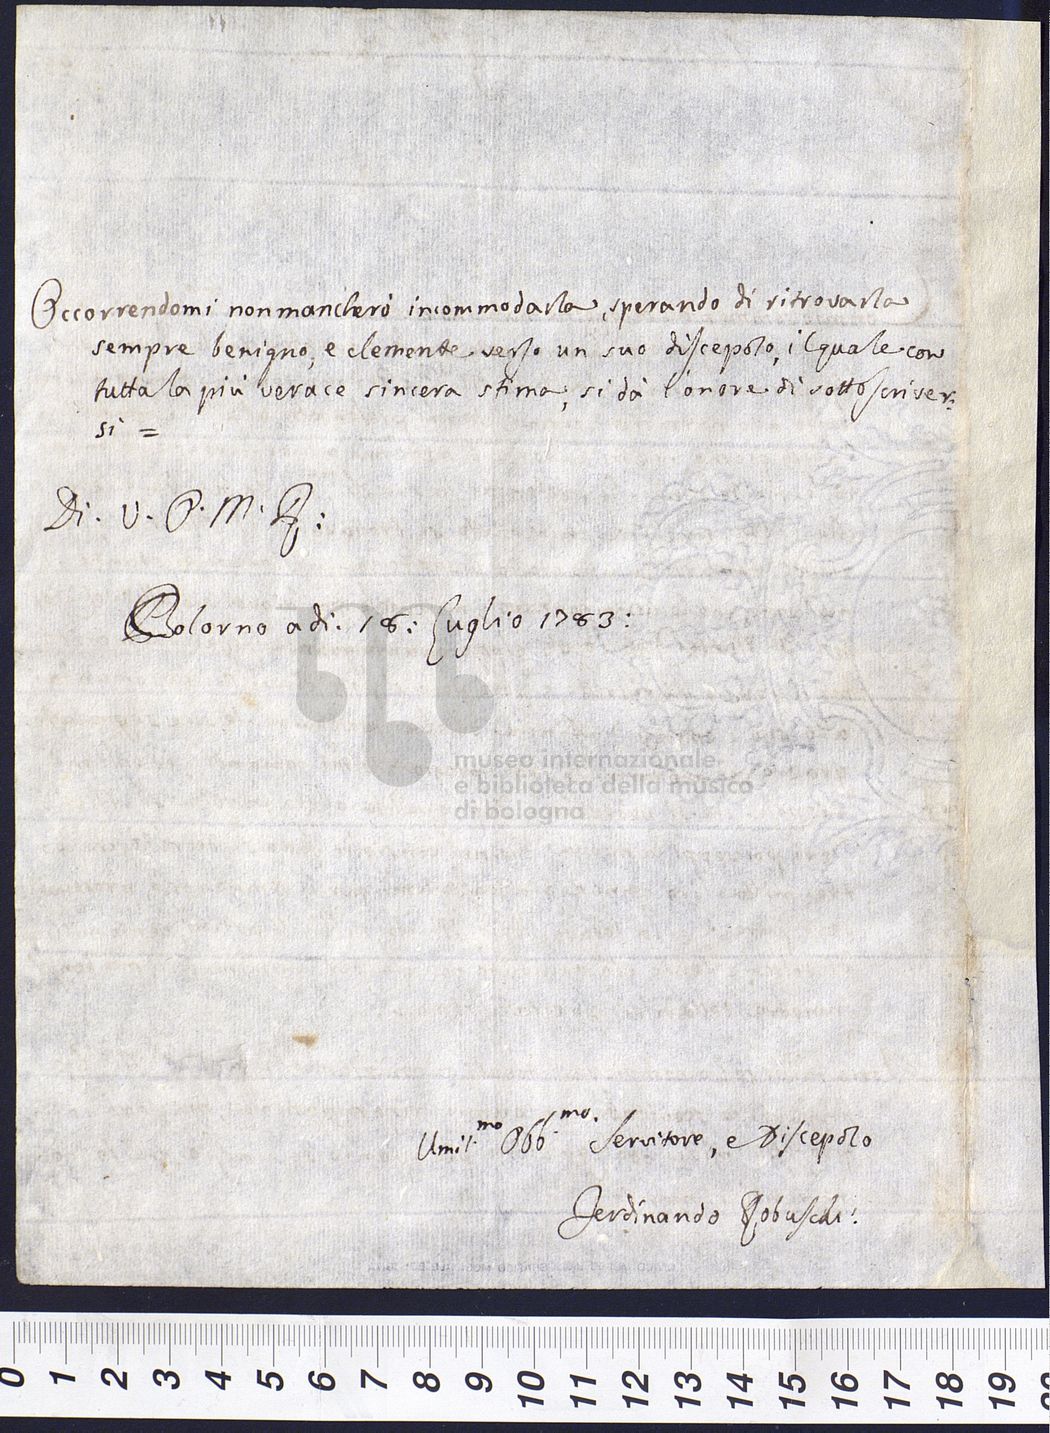 Occorrendomi non mancherò incommodarla, sperando di ritrovarla
sempre benigno, e clemente verso un suo discepolo, il quale con
tutta la più verace sincera stima, si dà l'onore di sottoscriver:
si =
Di. V. P. M. R:
Colorno adi. 18: Luglio 1783:
museo internazionale
e biblioteca della musica
di bologna
Umil.mo Obb.mo. Servitore, e Discepolo
Ferdinando Robuschi:
0 1 2 3 4 5 6 7 8 9 10 11 12 13 14 15 16 17 18 19